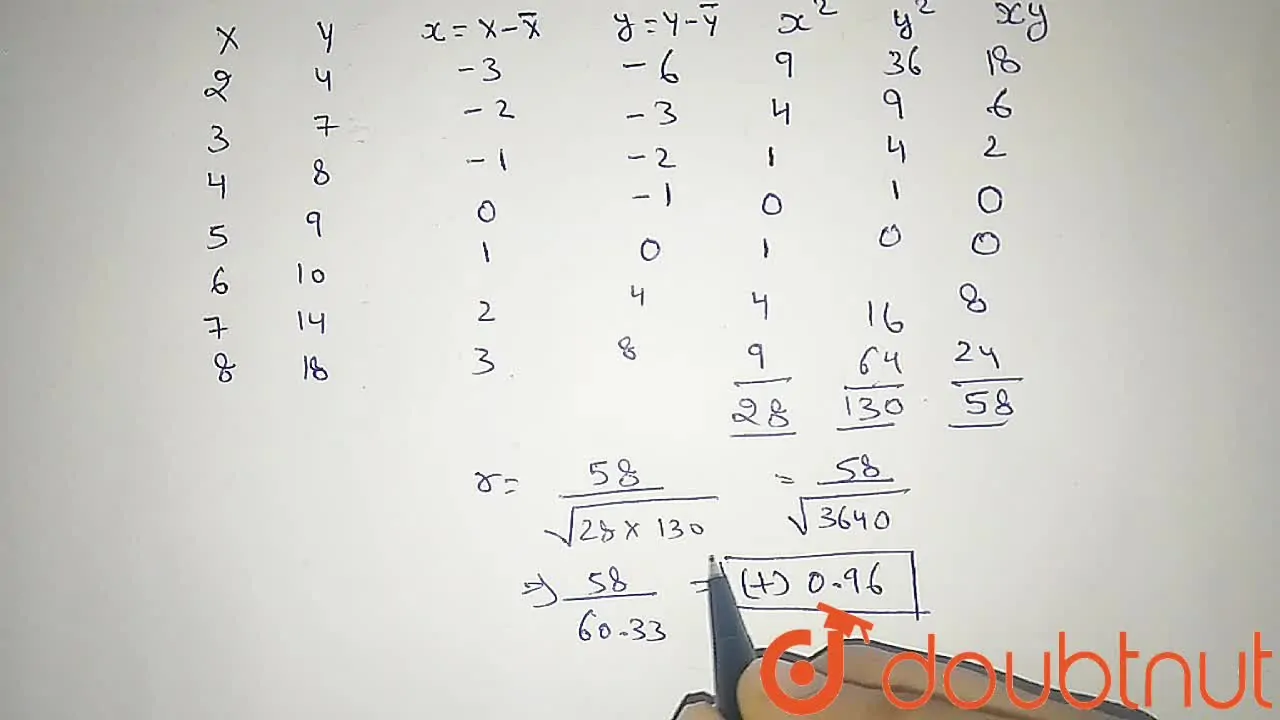 X Y x = X - X̄ y = Y - Ȳ x² y² xy
2 4 -3 -6 9 36 18
3 7 -2 -3 4 9 6
4 8 -1 -2 1 4 2
5 9 0 -1 0 1 0
6 10 1 0 1 0 0
7 14 2 4 4 16 8
8 18 3 8 9 64 24
28 130 58
r = 58 / √28 x 130 = 58 / √3640
=> 58 / 60.33 = (+) 0.96
doubtnut